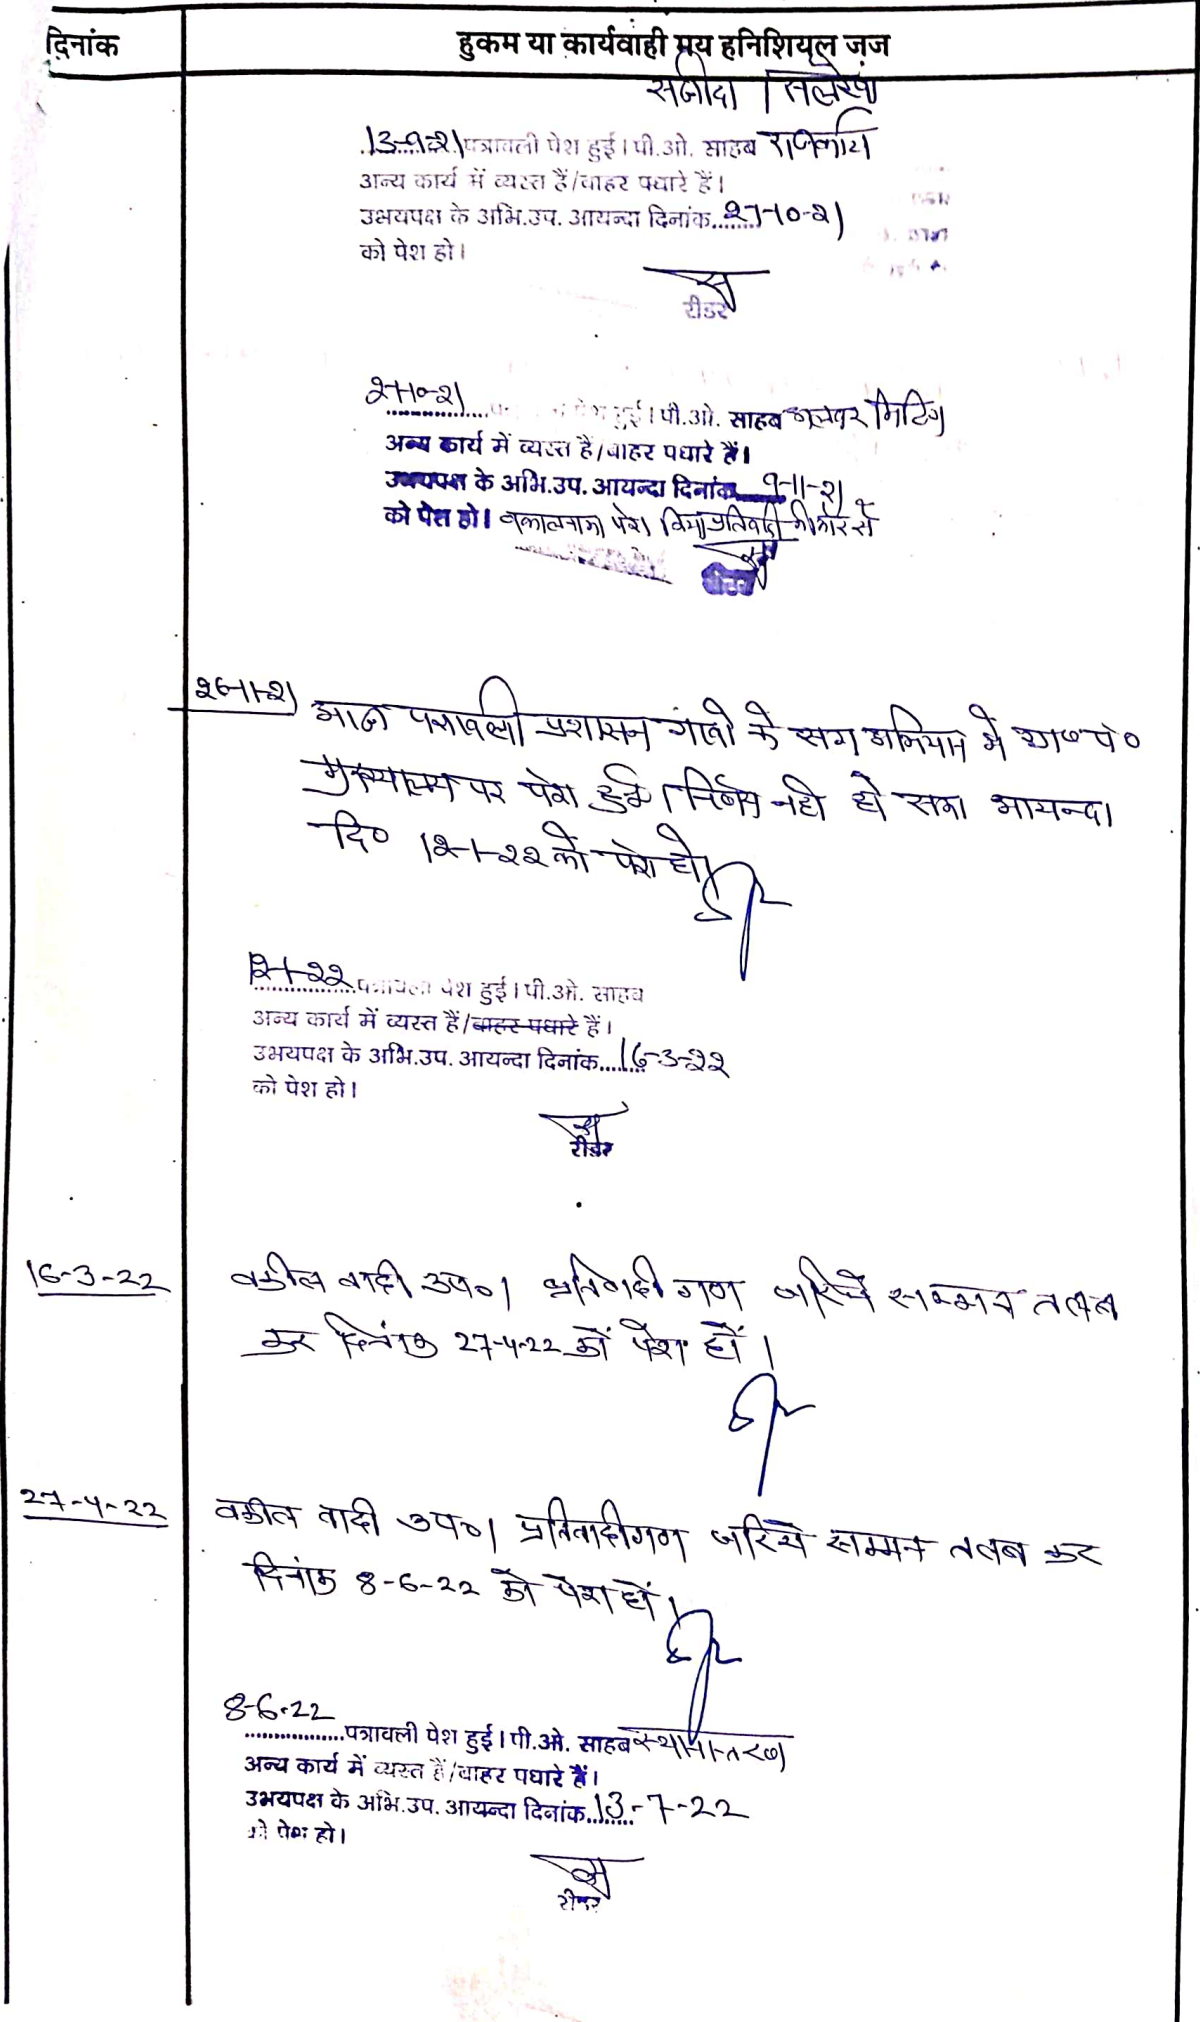 दिनांक
हुकम या कार्यवाही मय हनिशियूल जज
सजीदा / तलेखा
13-9-21 पत्रावली पेश हुई। पी.ओ. साहब राजकार्य
अन्य कार्य में व्यस्त हैं/बाहर पधारे हैं।
उभयपक्ष के अभि.उप. आयन्दा दिनांक........27-10-21
को पेश हो।
रीडर
27-10-21
पेश हुई। पी.ओ. साहब अलवर मिटिंग
अन्य कार्य में व्यस्त हैं/बाहर पधारे हैं।
उभयपक्ष के अभि.उप. आयन्दा दिनांक
को पेश हो। वकालतनामा पेश। प्रतिवादी की ओर से
रीडर
26-11-21
आज पत्रावली प्रशासन गांवो के संग अभियान में ग्रा० पं०
मुख्यालय पर पेश हुई। निर्णय नही हो सका आयन्दा
दि० 12-1-22 को पेश हो।
12-1-22 पत्रावली पेश हुई। पी.ओ. साहब
अन्य कार्य में व्यस्त हैं/बाहर पधारे हैं।
उभयपक्ष के अभि.उप. आयन्दा दिनांक....16-3-22
को पेश हो।
रीडर
16-3-22
वकील वादी उप०। प्रतिवादी गण जरिये सम्मन तलब
कर दिनांक 27-4-22 को पेश हों।
27-4-22
वकील वादी उप०। प्रतिवादीगण जरिये सम्मन तलब कर
दिनांक 8-6-22 को पेश हों।
8-6-22
..................पत्रावली पेश हुई। पी.ओ. साहब स्थानान्तरण
अन्य कार्य में व्यस्त हैं/बाहर पधारे हैं।
उभयपक्ष के अभि.उप. आयन्दा दिनांक........13-7-22
को पेश हो।
रीडर